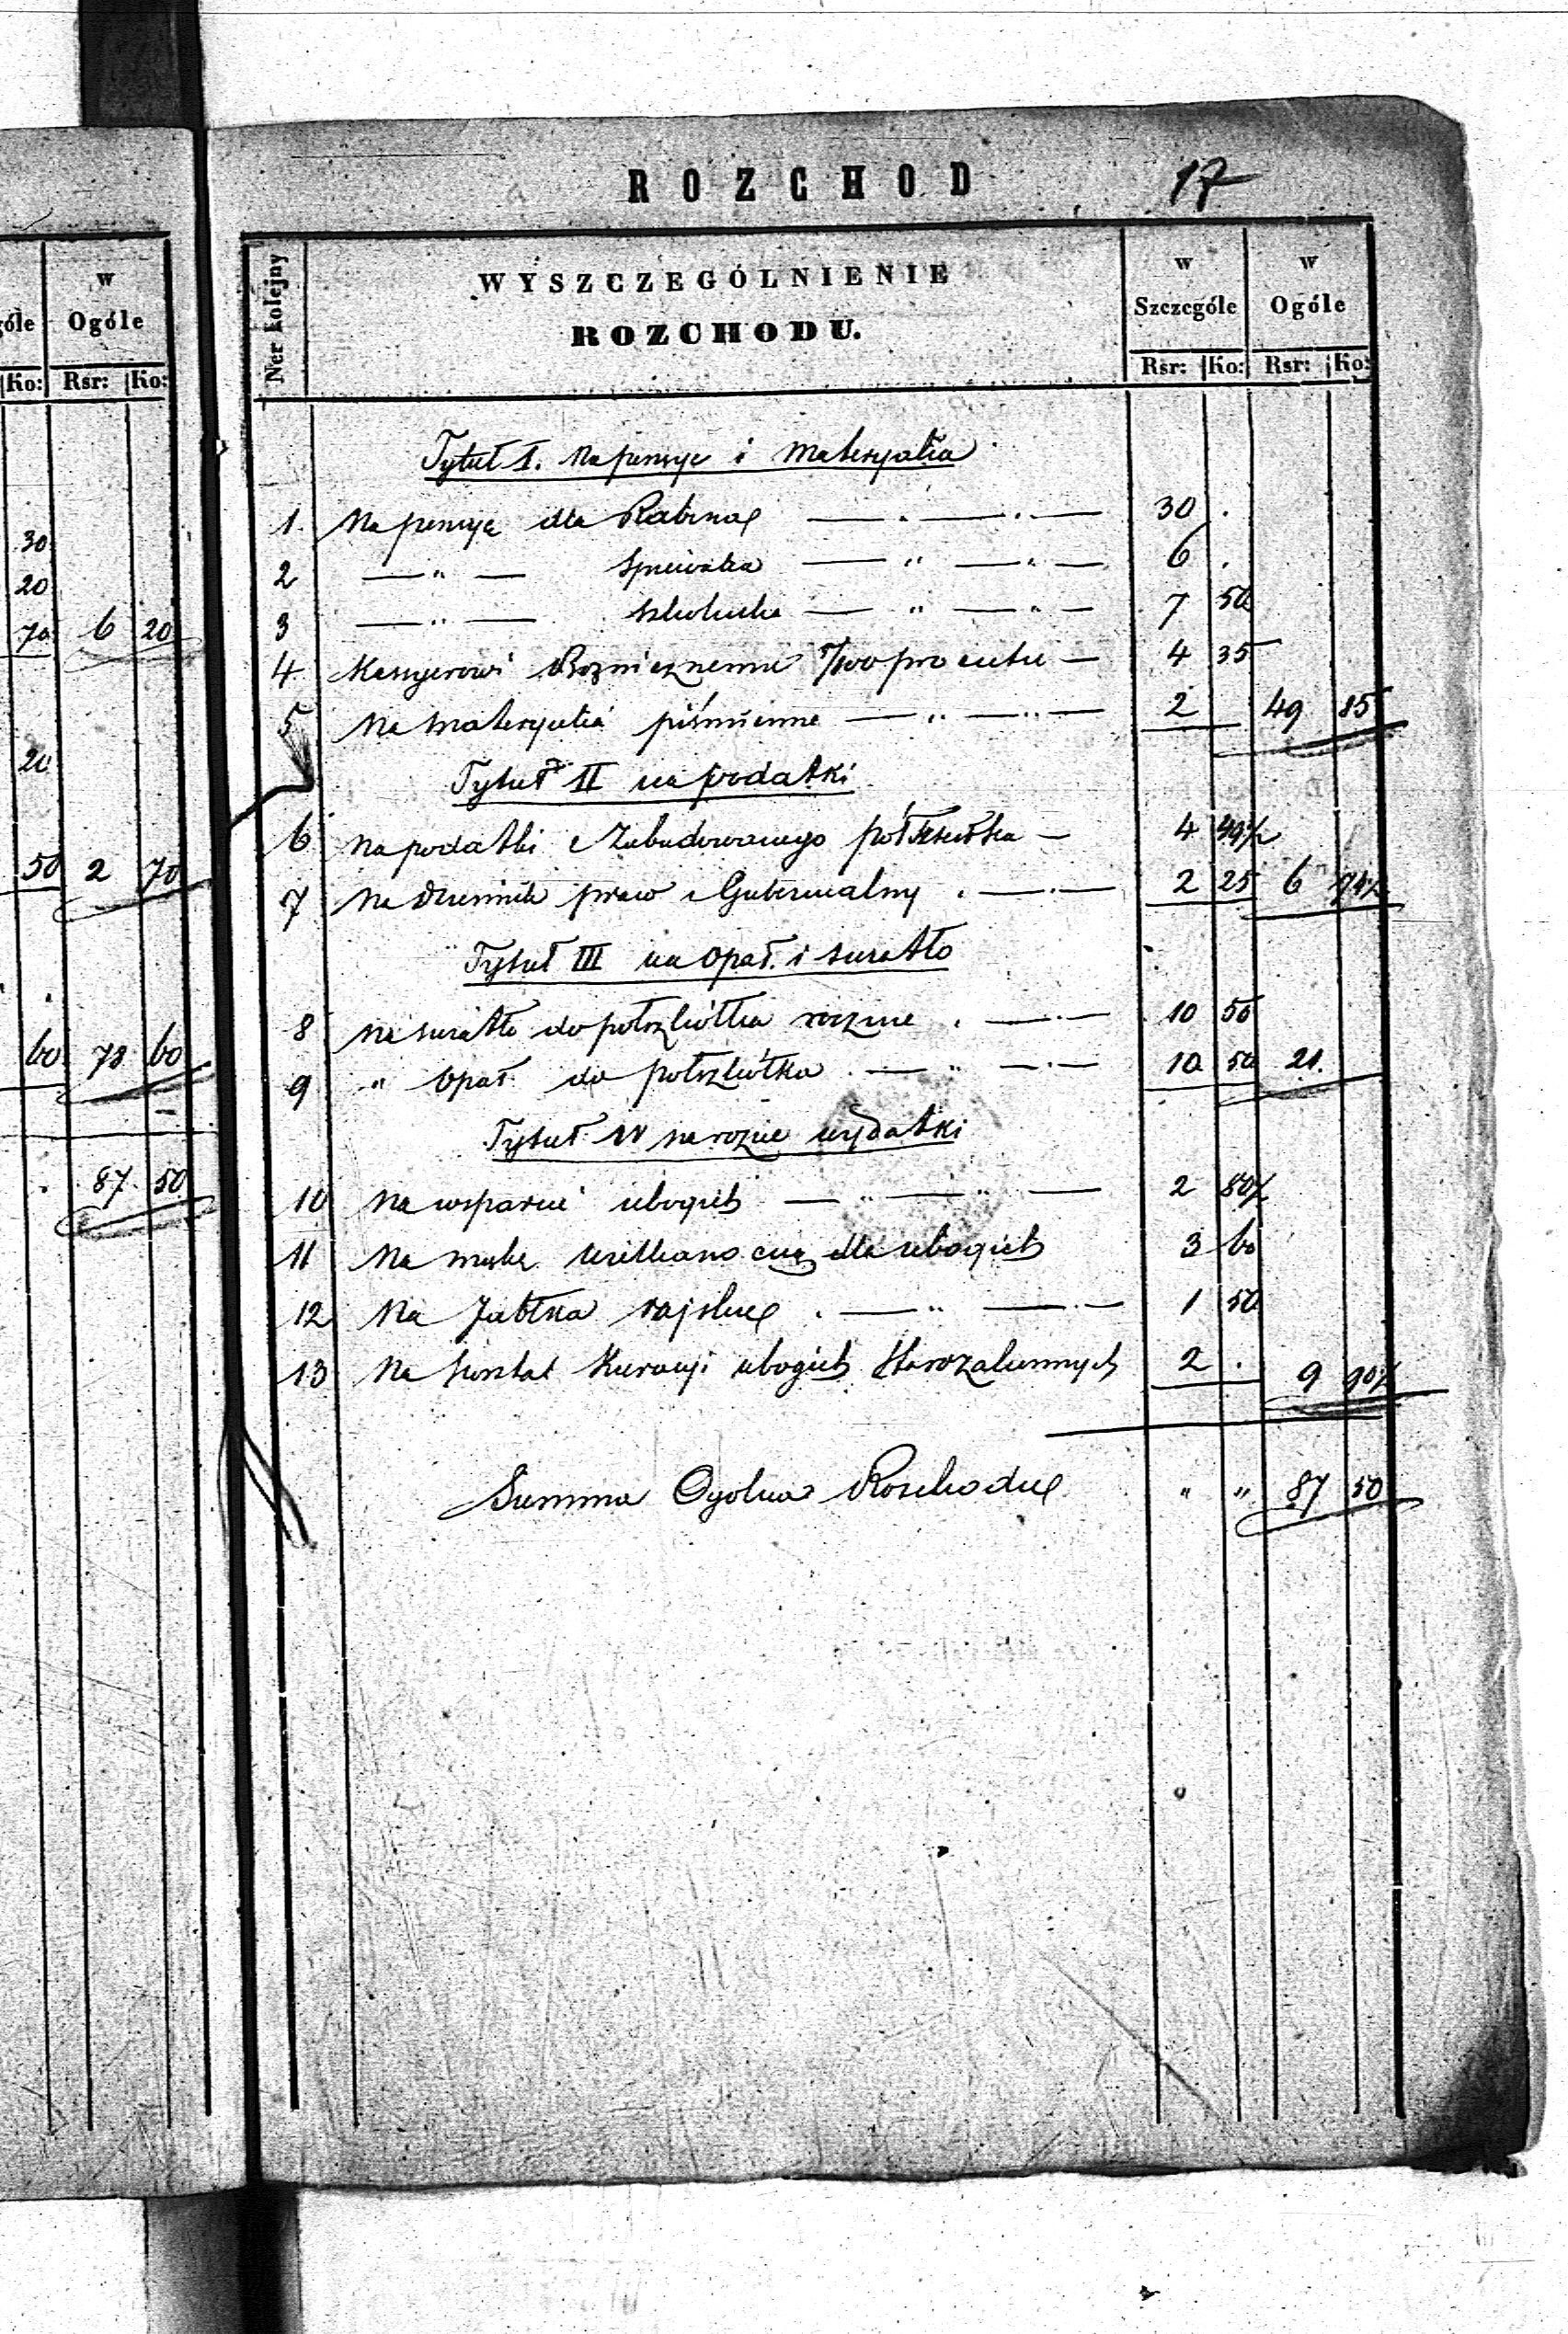 ROZCHOD 17
Ner kolejny
WYSZCZEGÓLNIENIE
ROZCHODU.
w Szczególe
w Ogóle
Rsr: Ko: Rsr: Ko:
Tytuł I. Na pensye i Materyalia
1 Na pensyą dla Rabina — " — " — 30 .
2 — " — Spiewaka — " — " — 6 .
3 — " — Szkolnika — " — " — 7 50
4 Kassyerowi Bożnicznemu 5/100 procentu — 4 35
5 Na materyalia piśmienne — " — " — 2 49 85
Tytuł II na podatki
6 Na podatki z Zabudowanego — 4 49½
7 Na Dziennik praw i Gubernialny . — . — 2 25 6 74½
Tytuł III na Opał i swiatło
8 Na swiatło do połszkółka roczne . — . — 10 50
9 " Opał do połszkółka . — " — . — 10 50 21.
Tytuł IV na rozne wydatki
10 Na wsparcie ubogich — " — " — 2 80½
11 Na mąkę wielkanocną dla ubogich 3 60
12 Na Jabłka rajskie . — " — . — 1 50
13 Na koszta Kuracyi ubogich Starozakonnych 2 . 9 90½
Summa Ogolna Roschodu " " 87 50
góle
w Ogóle
Ko: Rsr: Ko:
30
20
70 6 20
20
50 2 70
60 78 60
87 50